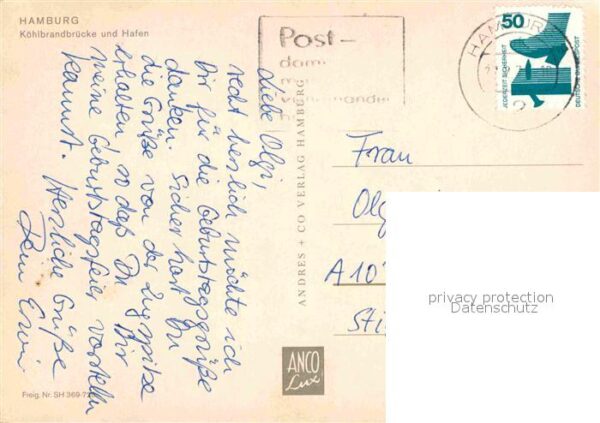 HAMBURG
Köhlbrandbrücke und Hafen
Liebe Olgi,
recht herzlich möchte ich
Dir für die Geburtstagsgrüße
danken. Sicher hast Du
die Grüße von der Zugspitze
erhalten, so daß Du Dir
meine Geburtstagsfeier vorstellen
kannst. Herzliche Grüße
Dein Erwin
Freig. Nr. SH 369-7
ANDRES + CO VERLAG HAMBURG
ANCO
Lux
Post-
HAMBURG
50
JEDERZEIT SICHERHEIT
DEUTSCHE BUNDESPOST
Frau
Olg
A 10
Sti
privacy protection
Datenschutz